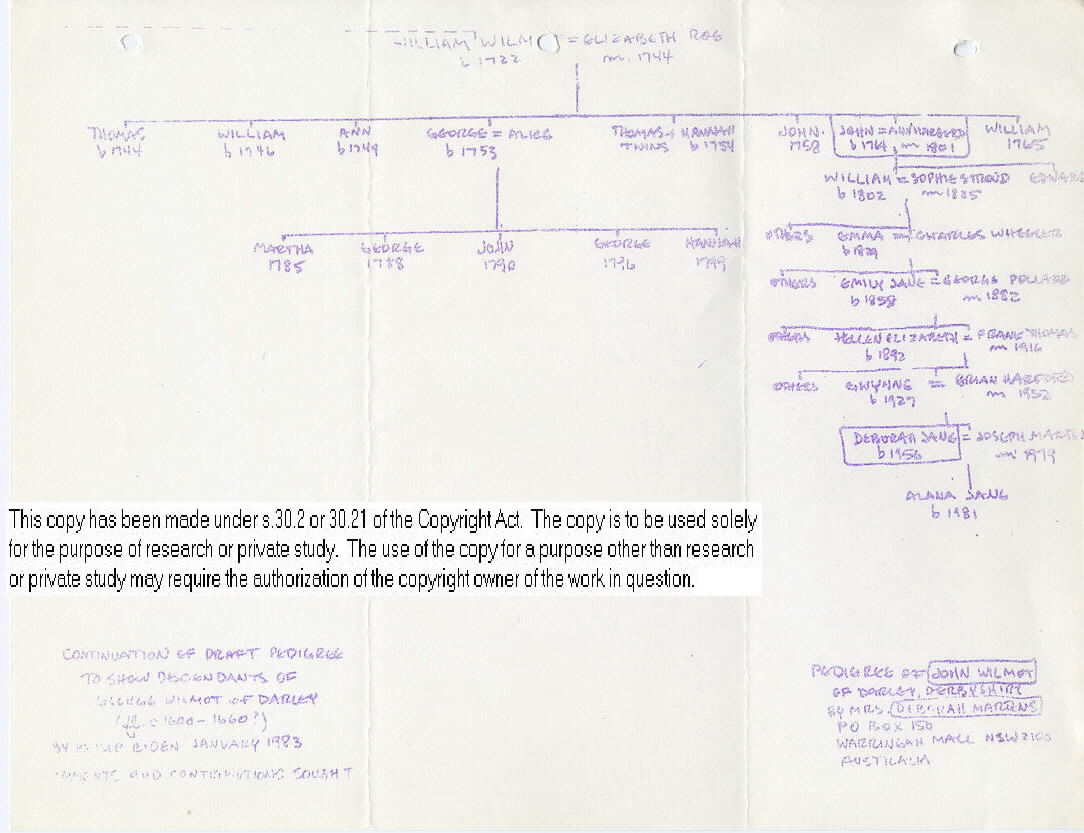 WILLIAM WILM = ELIZABETH
b 1722 m. 1744
THOMAS WILLIAM ANN GEORGE = ALICE THOMAS + HANNAH JOHN JOHN = ANN WILLIAM
b 1744 b 1746 b 1749 b 1753 TWINS b 1754 1758 b 1764 m 1801 1765
WILLIAM = SOPHIE STROUD
b 1802 m 1825
OTHERS EMMA = CHARLES WHEELER
MARTHA GEORGE JOHN GEORGE HANNAH
1785 1788 1790 1796 1799
OTHERS EMILY JANE = GEORGE POLLARD
b 1858 m 1882
OTHERS HELLEN ELIZABETH = FRANK THOMAS
b 1892 m 1916
OTHERS GWYNNE = BRIAN HARFORD
b 1927 m 1952
DEBORAH JANE = JOSEPH MARTEN
b 1956 m 1979
ALANA JANE
b 1981
This copy has been made under s.30.2 or 30.21 of the Copyright Act. The copy is to be used solely
for the purpose of research or private study. The use of the copy for a purpose other than research
or private study may require the authorization of the copyright owner of the work in question.
CONTINUATION OF DRAFT PEDIGREE
TO SHOW DESCENDANTS OF
GEORGE WILMOT OF DARLEY
(fl. c 1600-1660?)
BY RIDEN JANUARY 1983
AND CONTRIBUTIONS SOUGHT
PEDIGREE OF JOHN WILMOT
OF DARLEY, DERBYSHIRE
BY MRS. DEBORAH MARTENS
PO BOX 150
WARRINGAH MALL NSW 2100
AUSTRALIA